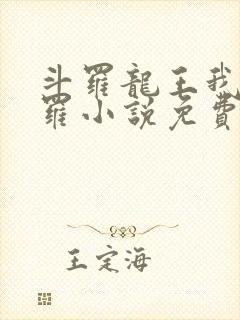 斗羅龍王我
羅小說免費
王定海